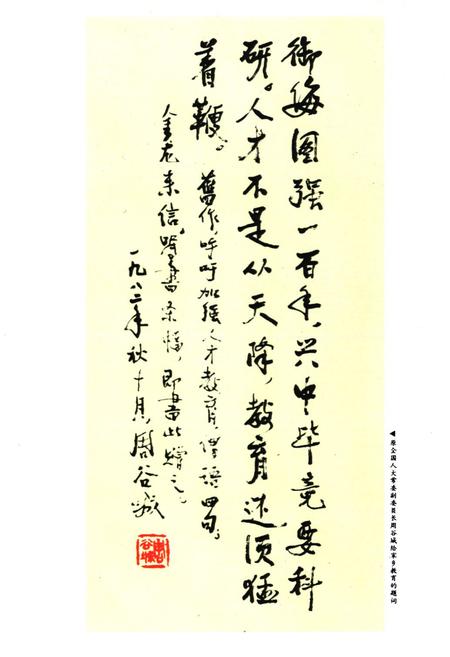 御侮图强一百年，兴中毕竟要科
研。人才不是从天降，教育还须猛
着鞭。
旧作，呼吁加强人才教育，俚语四句。
金龙来信，嘱书条幅，即书此赠之。
一九八二年秋十月，周谷城
◀原全国人大常委副委员长周谷城给家乡教育的题词